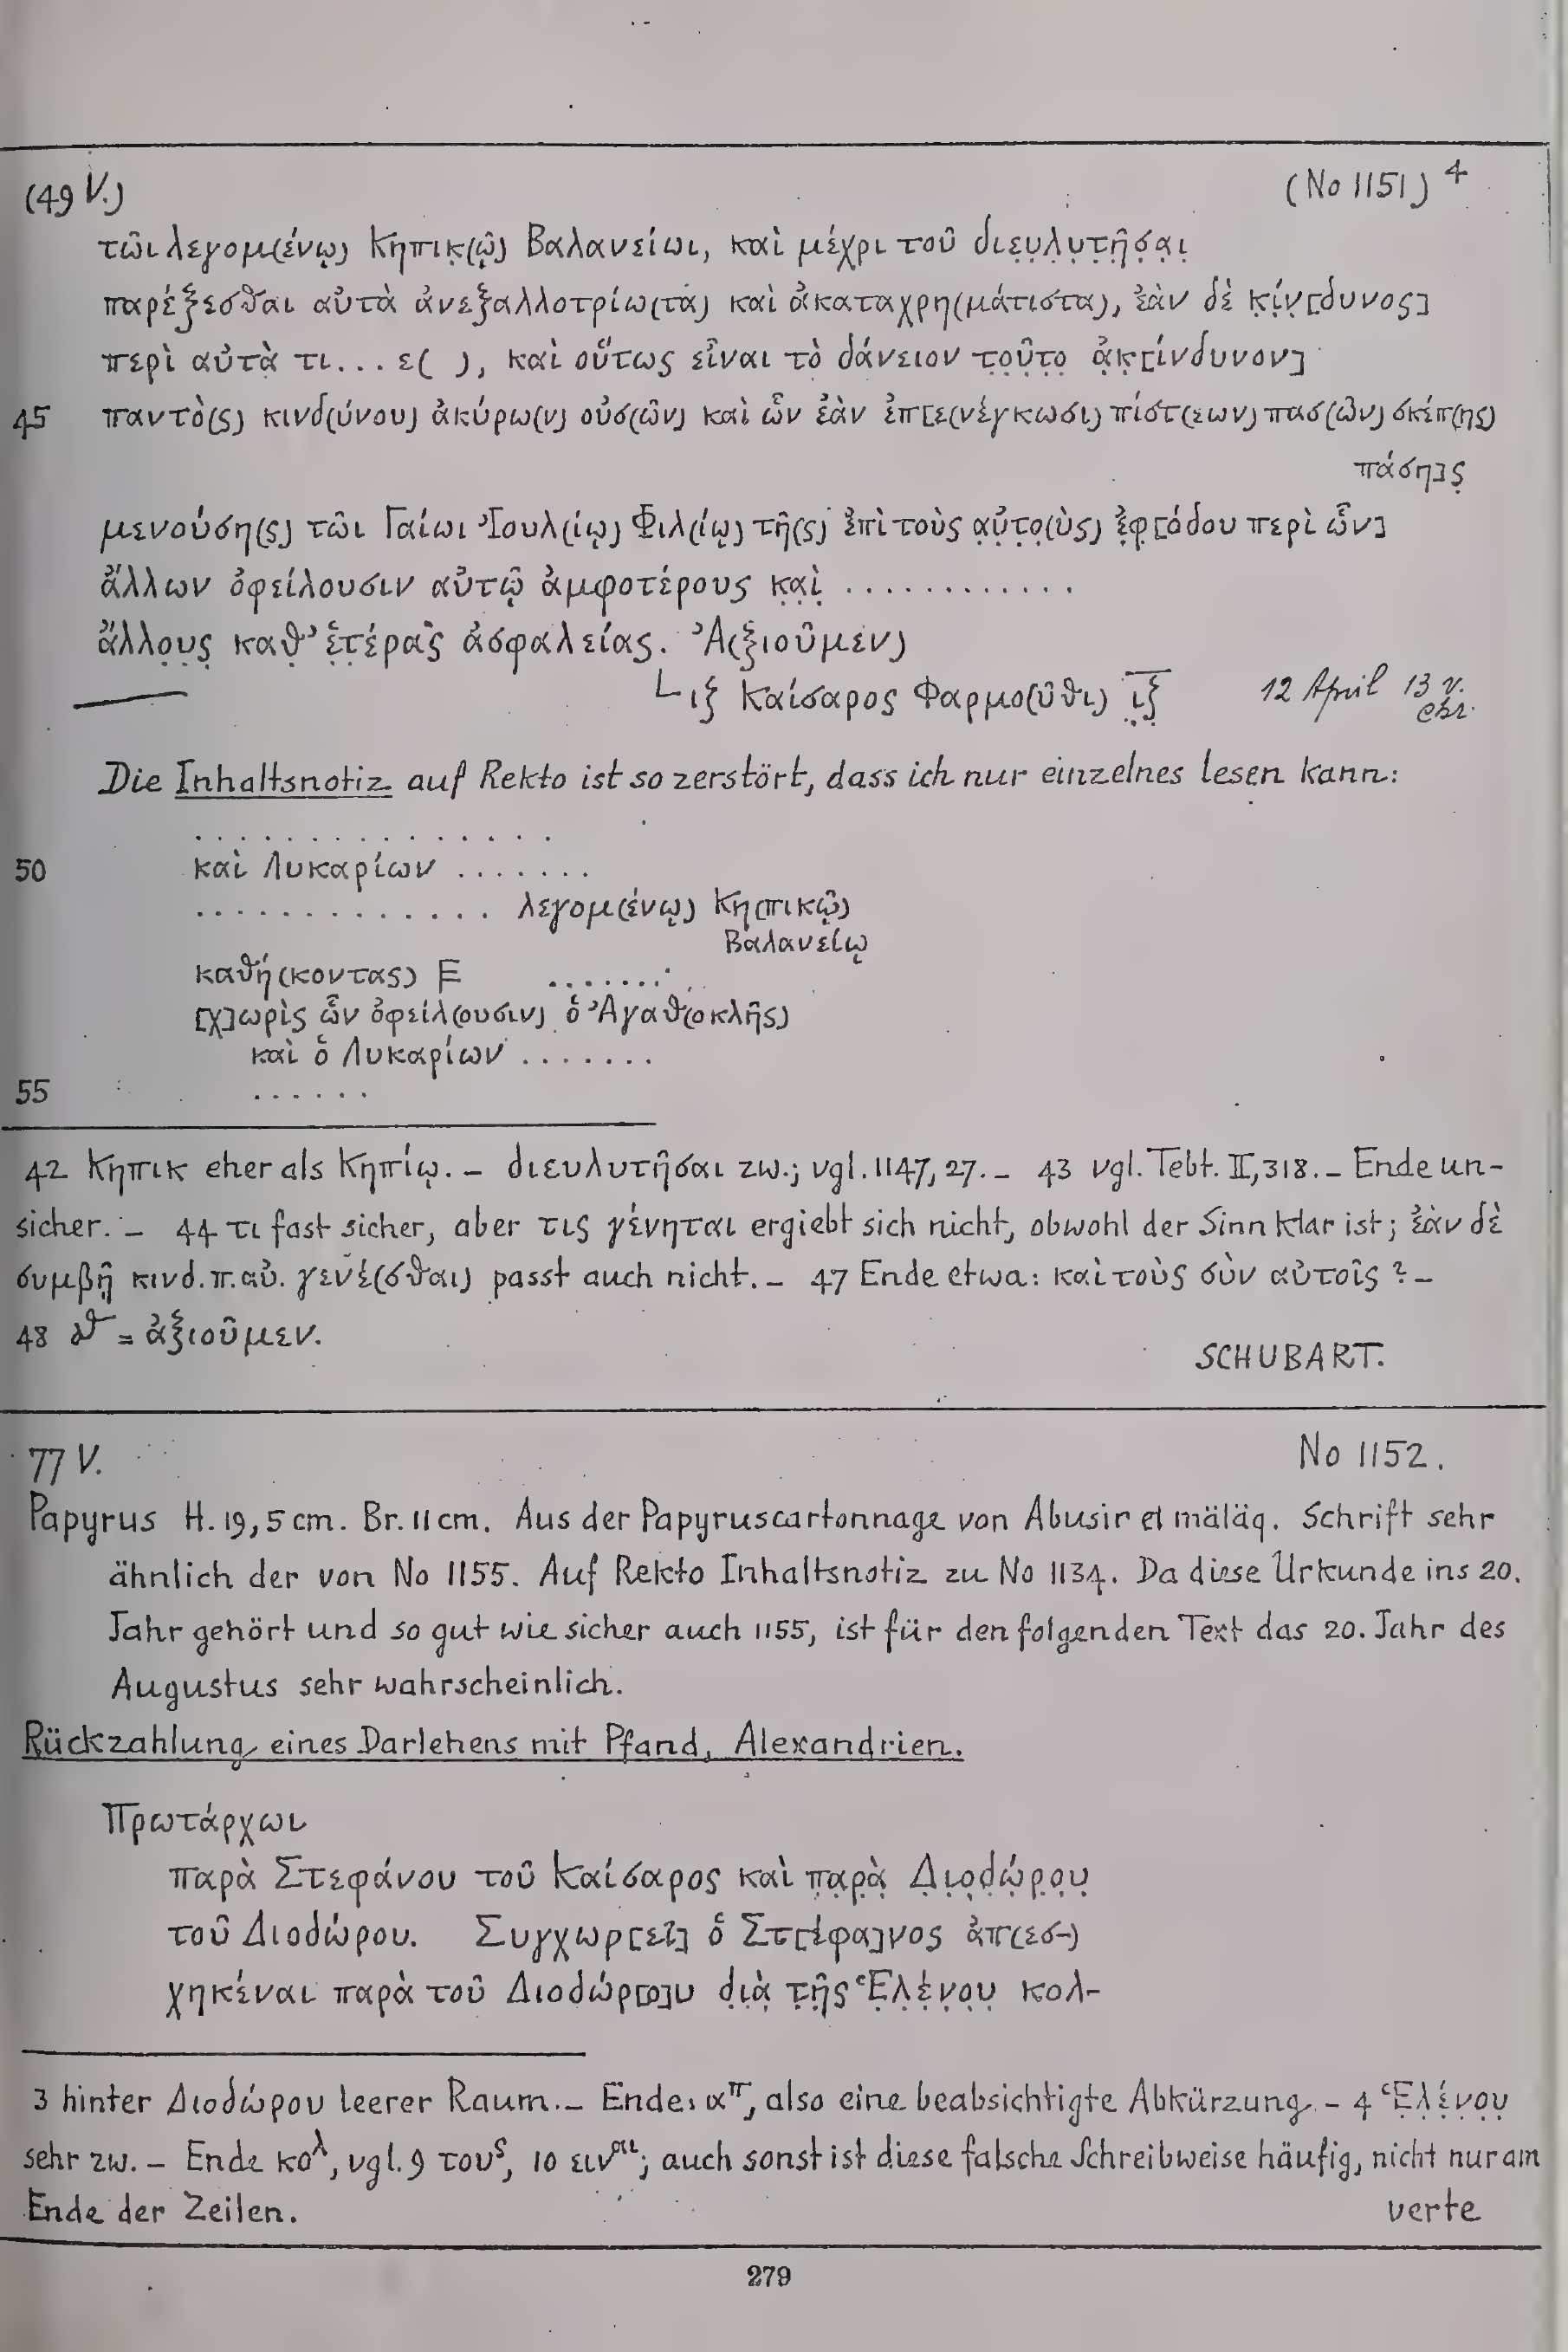 (49 V.) (No 1151) 4
τῶι λεγομ(ένῳ) Κηπικ̣(ῷ) Βαλανείωι, καὶ μέχρι τοῦ διευ̣λ̣υ̣τ̣ῆ̣σ̣α̣ι̣
παρέξεσθαι αὐτὰ ἀνεξαλλοτρίω(τα) καὶ ἀκαταχρη(μάτιστα), ἐὰν δὲ κ̣ίν̣[δυνος]
περὶ αὐτὰ τι... ε( ), καὶ οὕτως εἶναι τὸ δάνειον τ̣ο̣ῦ̣τ̣ο̣ ἀ̣κ̣[ίνδυνον]
45 παντὸ(ς) κινδ(ύνου) ἀκύρω(ν) οὐσ(ῶν) καὶ ὧν ἐὰν ἐπ[ε(νέγκωσι) πίστ(εων) πασ(ῶν) σκέπ(ης)
πάση]ς̣
μενούση(ς) τῶι Γαίωι Ἰουλ(ίῳ) Φιλ(ίῳ) τῆ(ς) ἐπὶ τοὺς α̣ὐ̣τ̣ο̣(ὺς) ἐ̣φ̣[όδου περὶ ὧν]
ἄλλων ὀφείλουσιν αὐτῷ ἀμφοτέρους κ̣α̣ὶ̣ ............
ἄλλο̣υ̣ς̣ καθ̣’ ἑ̣τ̣έρα̣ς ἀσφαλείας. Ἀ(ξιοῦμεν)
└ ιξ Καίσαρος Φαρμο(ῦθι) ι̣ξ̣ 12 April 13 v.
Chr.
Die Inhaltsnotiz auf Rekto ist so zerstört, dass ich nur einzelnes lesen kann:
...............
50 καὶ Λυκαρίων .......
............. λεγομ(ένῳ) Κη(πικῷ)
Βαλανείῳ
καθή(κοντας) Ε .......
[χ]ωρὶς ὧν ὀφείλ(ουσιν) ὁ Ἀγαθ(οκλῆς)
καὶ ὁ Λυκαρίων .......
55 ......
42 Κηπικ eher als Κηπίῳ. – διευλυτῆσαι zw.; vgl. 1147, 27. – 43 vgl. Tebt. II, 318. – Ende un-
sicher. – 44 τι fast sicher, aber τις γένηται ergiebt sich nicht, obwohl der Sinn klar ist; ἐὰν δὲ
συμβῇ κινδ. π. αὐ. γενέ(σθαι) passt auch nicht. – 47 Ende etwa: καὶ τοὺς σὺν αὐτοῖς ? –
48 = ἀξιοῦμεν.
SCHUBART.
77 V. No 1152.
Papyrus H. 19,5 cm. Br. 11 cm. Aus der Papyruscartonnage von Abusir el mäläq. Schrift sehr
ähnlich der von No 1155. Auf Rekto Inhaltsnotiz zu No 1134. Da diese Urkunde ins 20.
Jahr gehört und so gut wie sicher auch 1155, ist für den folgenden Text das 20. Jahr des
Augustus sehr wahrscheinlich.
Rückzahlung eines Darlehens mit Pfand, Alexandrien.
Πρωτάρχωι
παρὰ Στεφάνου τοῦ Καίσαρος καὶ π̣α̣ρ̣ὰ̣ Δ̣ι̣ο̣δ̣ώ̣ρ̣ο̣υ̣
τοῦ Διοδώρου. Συγχωρ[εῖ] ὁ Στ[έφα]νος ἀπ(εσ-)
χηκέναι παρὰ τοῦ Διοδώρ[ο]υ δ̣ι̣ὰ̣ τ̣ῆ̣ς Ἑ̣λ̣έ̣ν̣ο̣υ̣ κολ-
3 hinter Διοδώρου leerer Raum. – Ende: απ, also eine beabsichtigte Abkürzung. – 4 Ἑ̣λ̣έ̣ν̣ο̣υ̣
sehr zw. – Ende κολ, vgl. 9 τους, 10 ειναι; auch sonst ist diese falsche Schreibweise häufig, nicht nur am
Ende der Zeilen. verte
279